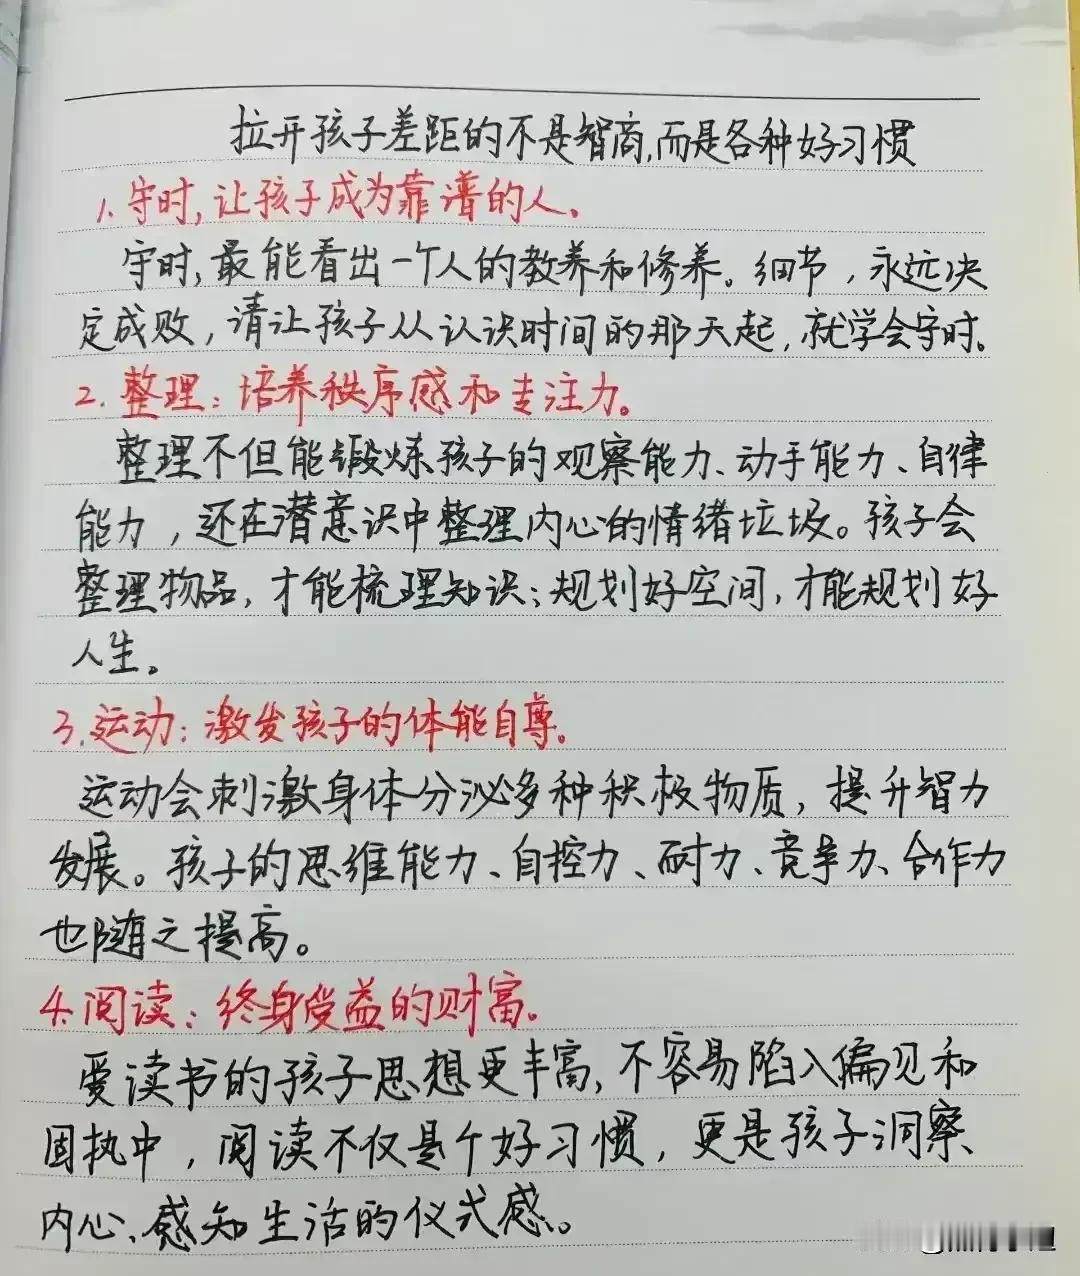 拉开孩子差距的不是智商,而是各种好习惯
1.守时,让孩子成为靠谱的人。
守时,最能看出一个人的教养和修养。细节,永远决
定成败,请让孩子从认识时间的那天起,就学会守时。
2.整理:培养秩序感和专注力。
整理不但能锻炼孩子的观察能力、动手能力、自律
能力,还在潜意识中整理内心的情绪垃圾。孩子会
整理物品,才能梳理知识;规划好空间,才能规划好
人生。
3.运动:激发孩子的体能自尊。
运动会刺激身体分泌多种积极物质,提升智力
发展。孩子的思维能力、自控力、耐力、竞争力、合作力
也随之提高。
4.阅读:终身受益的财富。
爱读书的孩子思想更丰富,不容易陷入偏见和
固执中,阅读不仅是个好习惯,更是孩子洞察
内心、感知生活的仪式感。